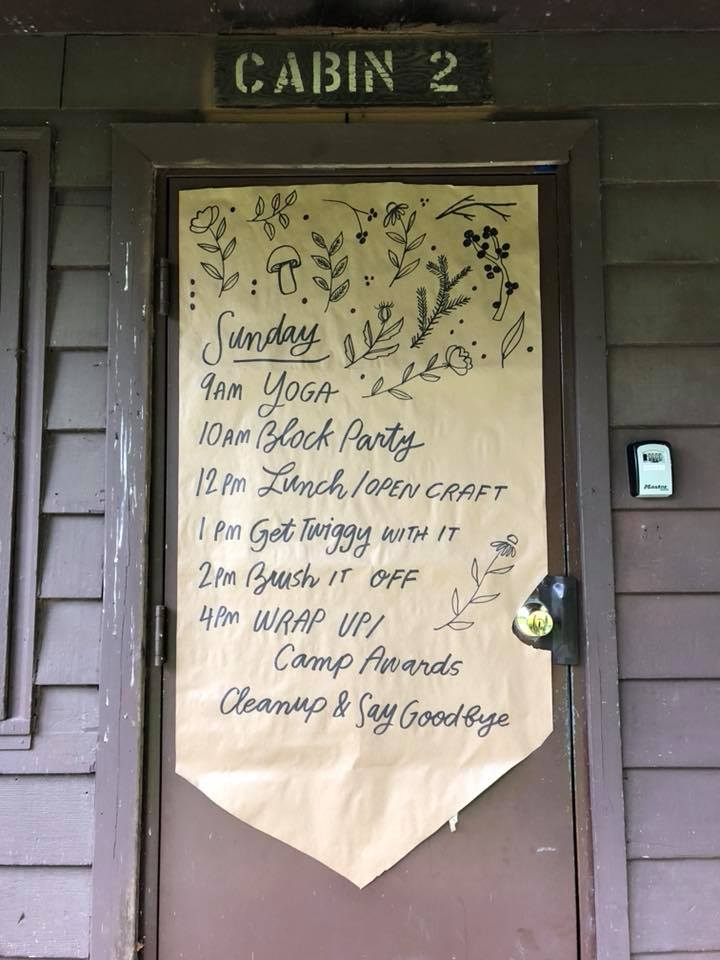 CABIN 2
Sunday
9AM YOGA
10AM Block Party
12PM Lunch/OPEN CRAFT
1PM Get Twiggy WITH IT
2PM Brush IT OFF
4PM WRAP UP/
Camp Awards
Cleanup & Say Goodbye
Master